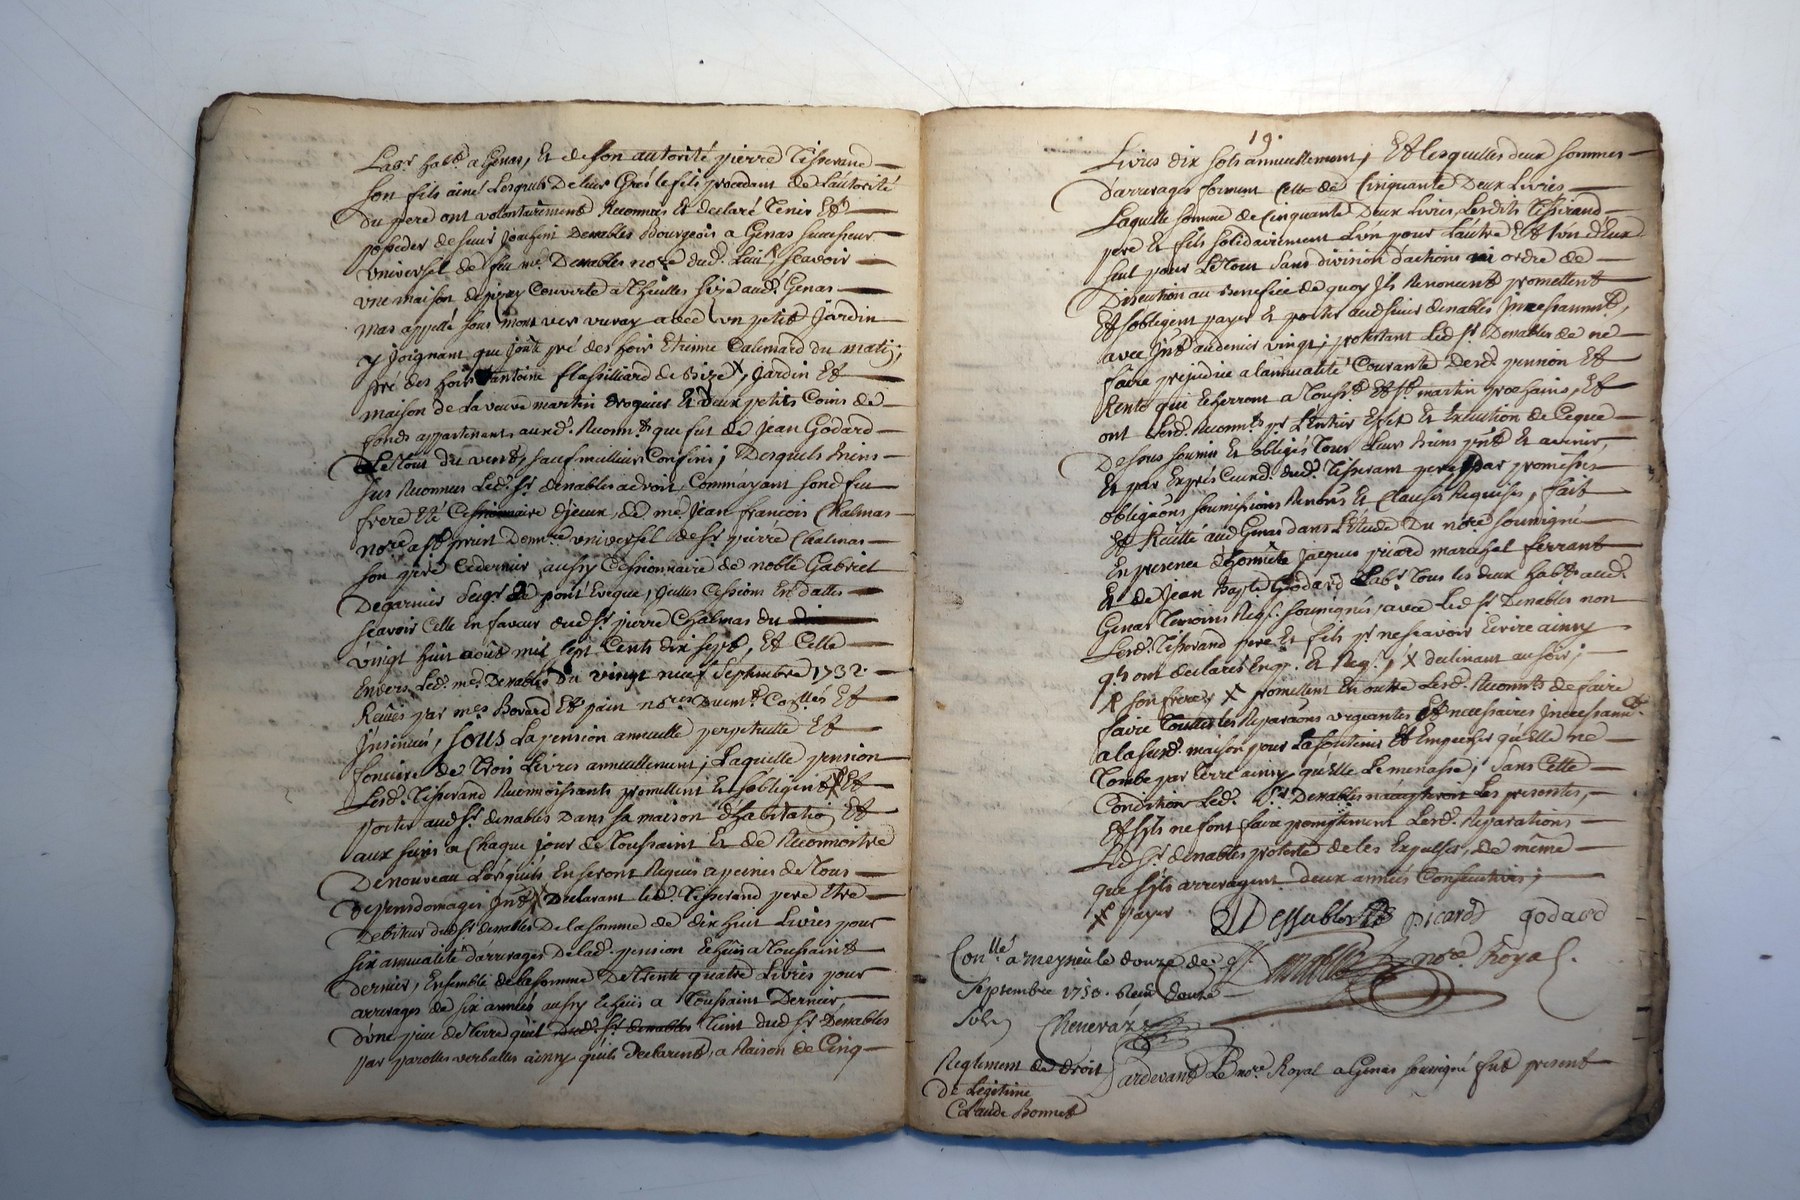 Labr. habt. a Genas, Et de son autorité pierre Tisserand
son fils ainé Lesquels De leur Gré le fils procedant de l'autorité
Du pere ont volontairement Reconnus Et declaré Tenir Et
posseder de sieur Joachim Denables Bourgeois a Genas successeur
Universel de feu me. Denables nore dud. Lieu Scavoir
une maison de pizay Couverte a Thuilles size aud. Genas
mas appellé sous mont avec un petit Jardin
y Joignant que Joute pré des hoirs Etienne Calemard du matin,
pré des hoirs antoine flassilliard de Bize, Jardin Et
maison de La veuve martin Et Deux petits Coins de
fonds appartenants auxd. Reconnts. que fut de Jean Godard
Le Tout du vent, sauf meilleurs Confins; Desquels biens
sus Reconnus Led. sr. denables a droit, Comme ayant son feu
frere Eté Cessionnaire d'jceux, de me. Jean françois Chalmas
nore. universel de sr. pierre Chalmas
son pere Ce dernier aussy Cessionnaire de noble Gabriel
Degarnier seigr. de pont Eveque, Celles Cessions En dattes
scavoir Celle En faveur dud. sr. pierre Chalmas du
vingt huit août mil sept Cents dix sept, Et Celle
Envers Led. me. Denables Du vingt neuf Septembre 1732.
Receües par mes. Bovard Et pain nores. Duemt. Collées Et
Jnsinuées, sous La pension annuelle perpetuelle Et
fonciere de Trois Livres annuellement; Laquelle pension
Lesd. Tisserand Reconnoissants promettent Et s'obligent X Et
porter aud. sr. denables Dans sa maison d'habitation Et
aux siens a Chaque jour de Toussaint Et de Reconnoitre
De nouveau Lorsquils En seront Requis a peines de Tous
depens domages Jnts. X Declarant led. Tisserand pere Etre
Debiteur dud. sr. denables De la somme de dix huit Livres pour
six annualité d'arrerages de lad. pension Echües a Toussaint
dernier, Ensemble de la somme De Trente quatre Livres pour
arrerages de six années aussy Echües a Toussaint Dernier,
d'une piece de Terre qu'il Tient dud. sr. Denables
par parolles verballes ainsy qu'ils declarent, a Raison de Cinq
19.
Livres dix sols annuellement; Et lesquelles deux sommes
D'arrerages forment Celle de Cinquante Deux Livres
Laquelle somme de Cinquante Deux Livres Lesdits Tisserand
pere Et fils solidairement L'un pour L'autre Et L'un d'Eux
seul pour Le Tout sans division d'actions ni ordre de
Discution au Benefice de quoy Ils Renoncent promettent
Et s'obligent payer Et porter aud. sieur denables Jncessamment,
avec Jnt. au denier vingt; protestant Led. sr. Denables de ne
faire prejudice a l'annualité Courante desd. pension Et
Rente qui Echerront a Touss. Et St. martin prochains, Et
ont Lesd. Reconnts. pr. L'Entier Effet Et Execution de Ce que
Dessous soumis Et obligés Tous Leurs Biens pnts. Et avenir,
Et par Exprés Ceux dud. Tisserant pere par promesses
obligaons soumissions Renons. Et Clauses Requises, fait
Et Recitté aud. Genas dans L'Etude Du nore. soussigné
En presence d'honnête Jacques picard marechal ferrant
Et de Jean Bapte. Godard Labr. Tous les deux habts. aud.
Genas Temoins Reqs. soussignés avec Led. sr. Denables non
Lesd. Tisserand pere Et fils pr. ne scavoir Ecrire ainsy
qls. ont declarés Enqs. Et Reqs. X declinant au soir;
X son frere; X promettent En outre Lesd. Reconnts. de faire
faire Touttes les Reparaons urgeantes Et necessaires Jncessamt.
a la susd. maison pour La soutenir Et Empecher qu'elle ne
Tombe par Terre ainsy qu'Elle Le menasse; Sans Cette
Condition Led. Sr. Denables n'accepteroit Les presentes,
Et s'ils ne font faire promptement Lesd. Reparations
Led. sr. denables proteste de les Expulser, de même
que s'ils arreragent deux années Consecutives;
X payer picard godard
Conllé. a meyzieu le douze de nore. Royal.
Septembre 1750. Recu douze
Sols Cheneraz
Reglement de droit
De Legitime
Claude Bonnet
Pardevant Le nore. Royal a Genas soussigné fut present